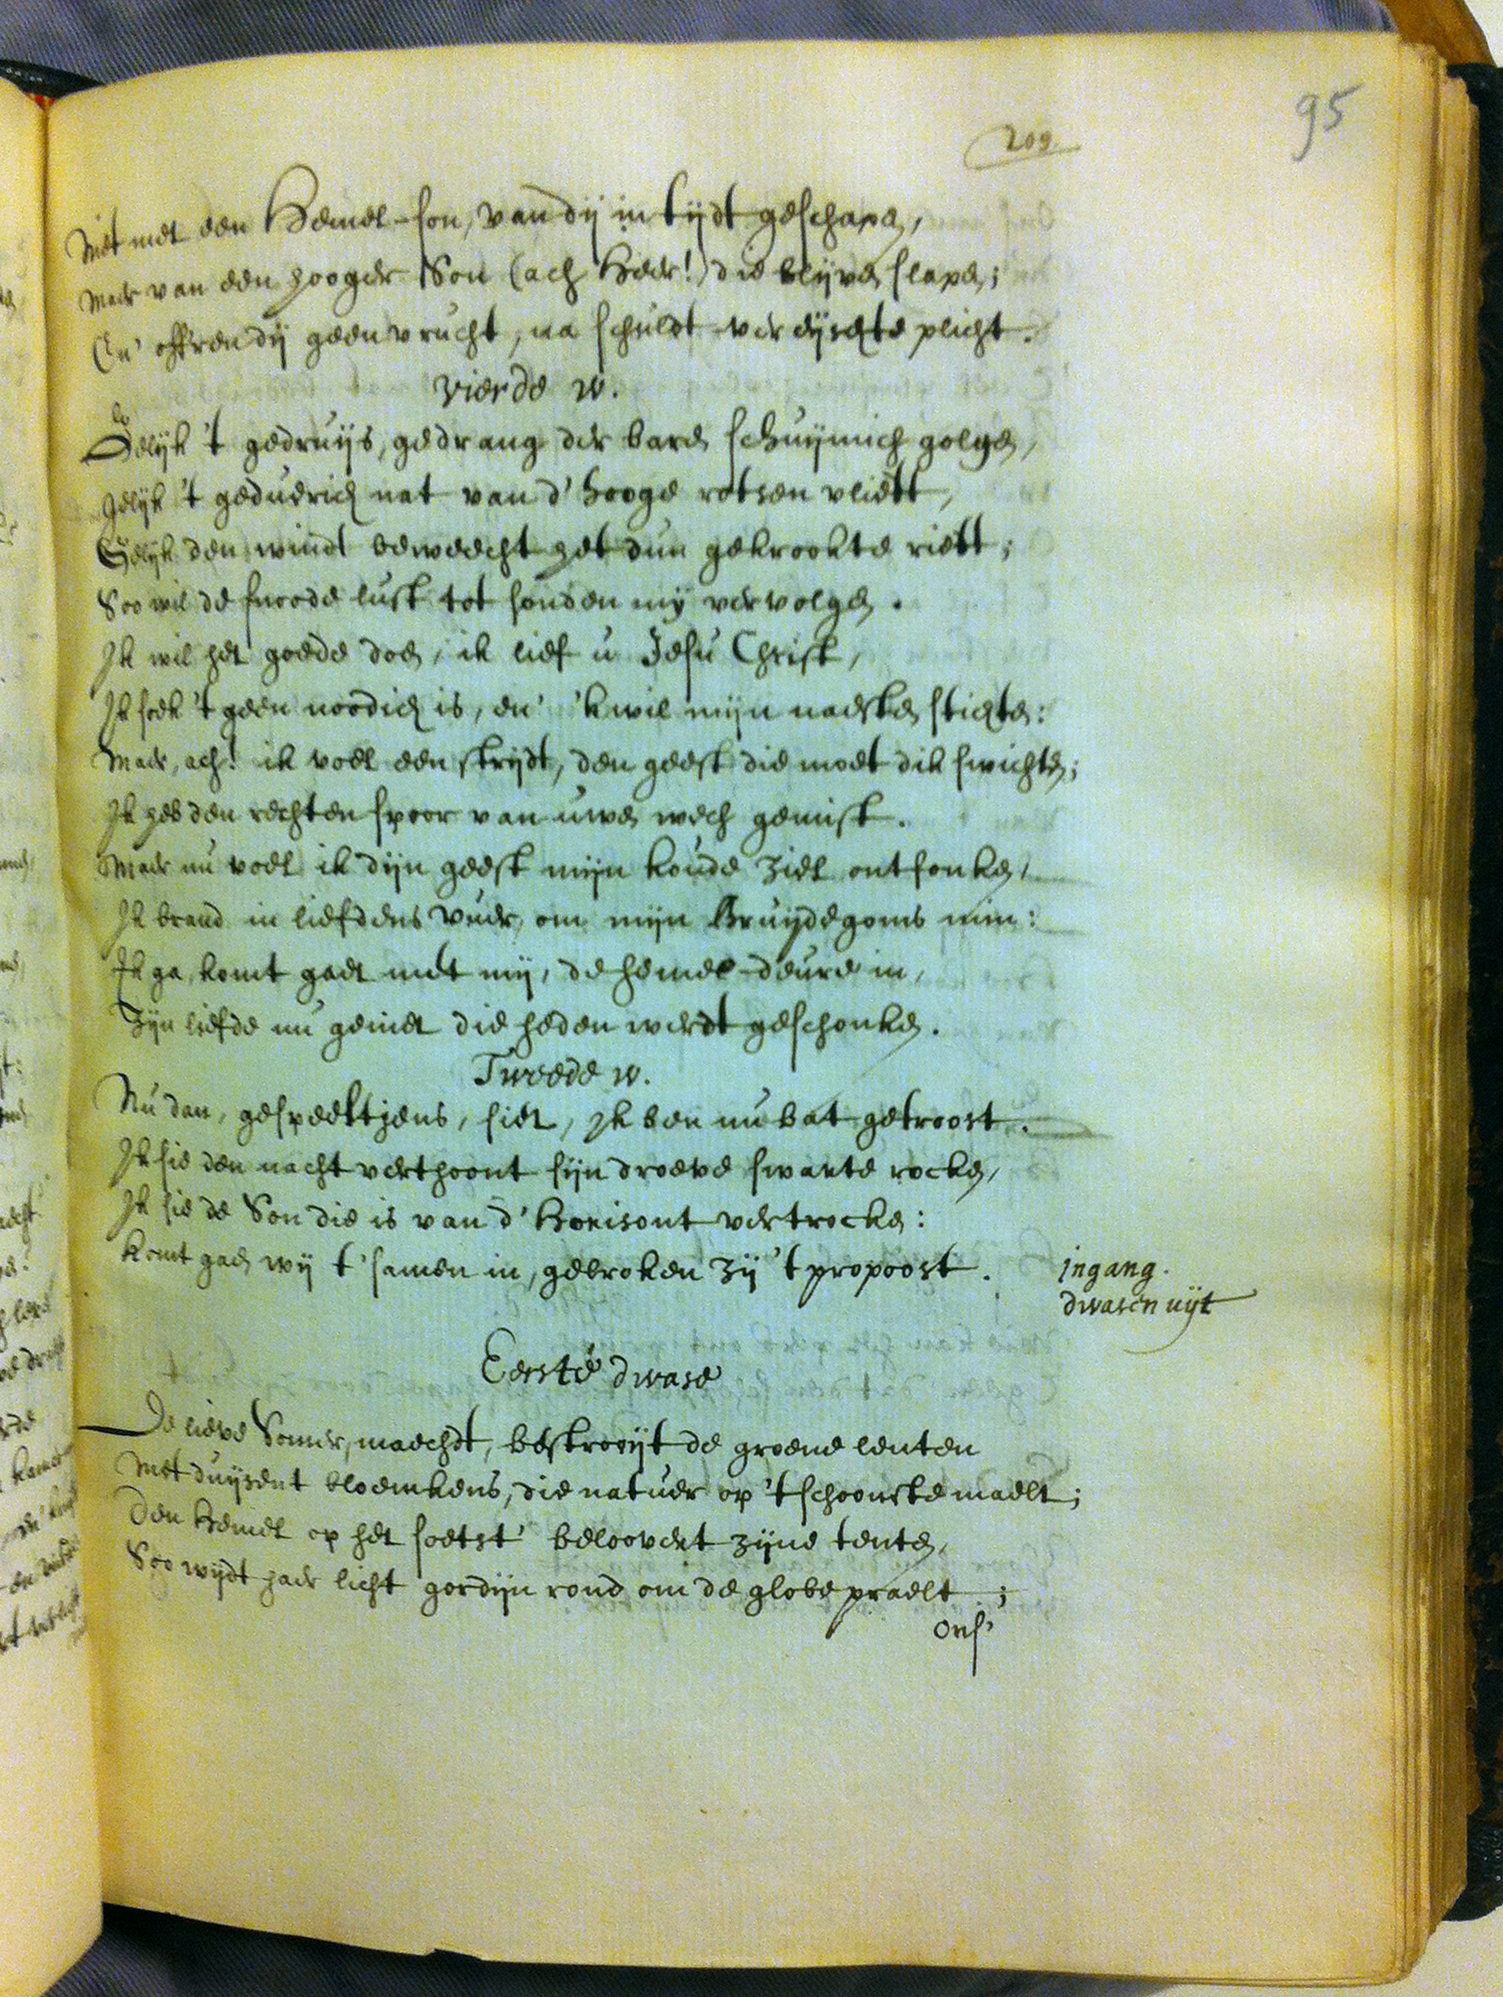 95
209.
Niet met een Hemel-son, van dij in tijdt geschapen,
Maer van een hooger Son (ach Heer!) die blijven slapen;
En' offren dij geen vrucht, na schuldt vereyschte plicht.
Vierde w.
Gelijk 't gedruijs, gedrang der baren schuijmich golgen,
Gelijk 't geduerich nat van d' hooge rotsen vliett,
Gelijk den windt beweecht het dun gekrookte riett;
Soo wil de snoode lust tot sonden mij vervolgen.
Ik wil het goede doen, ik lief u Jesu Christ,
Ik soek 't geen noodich is, en' 'k wil mijn naesten stichten:
Maer, ach! ik voel een strijdt, den geest die moet dik swichten;
Ik heb den rechten spoor van uwen wech gemist.
Maer nu voel ik dijn geest mijn koude ziel ontfonken,
Ik brand in liefdens vuer, om mijn Bruijdegoms min:
Ik ga, komt gaet met mij, de hemel-deure in,
Zijn liefde nu geniet die heden werdt geschonken.
Tweede w.
Nu dan, gespeeltjens, siet, Ik ben nu bat getroost.
Ik sie den nacht verthoont sijn droeve swarte rocken,
Ik sie de Son die is van d' Horisont vertrocken:
Komt gaen wij t' samen in, gebroken zij 't propoost.
ingang.
dwasen uijt
Eerste dwase
De lieve Somer, maechdt, bestrooijt de groene lenten
Met duijsent bloemkens, die natuer op 't schoonste maelt;
Den Hemel op het soetst' beloovert zijne tenten,
Soo wijdt haer licht gordijn rond om de globe praelt;
Ons'